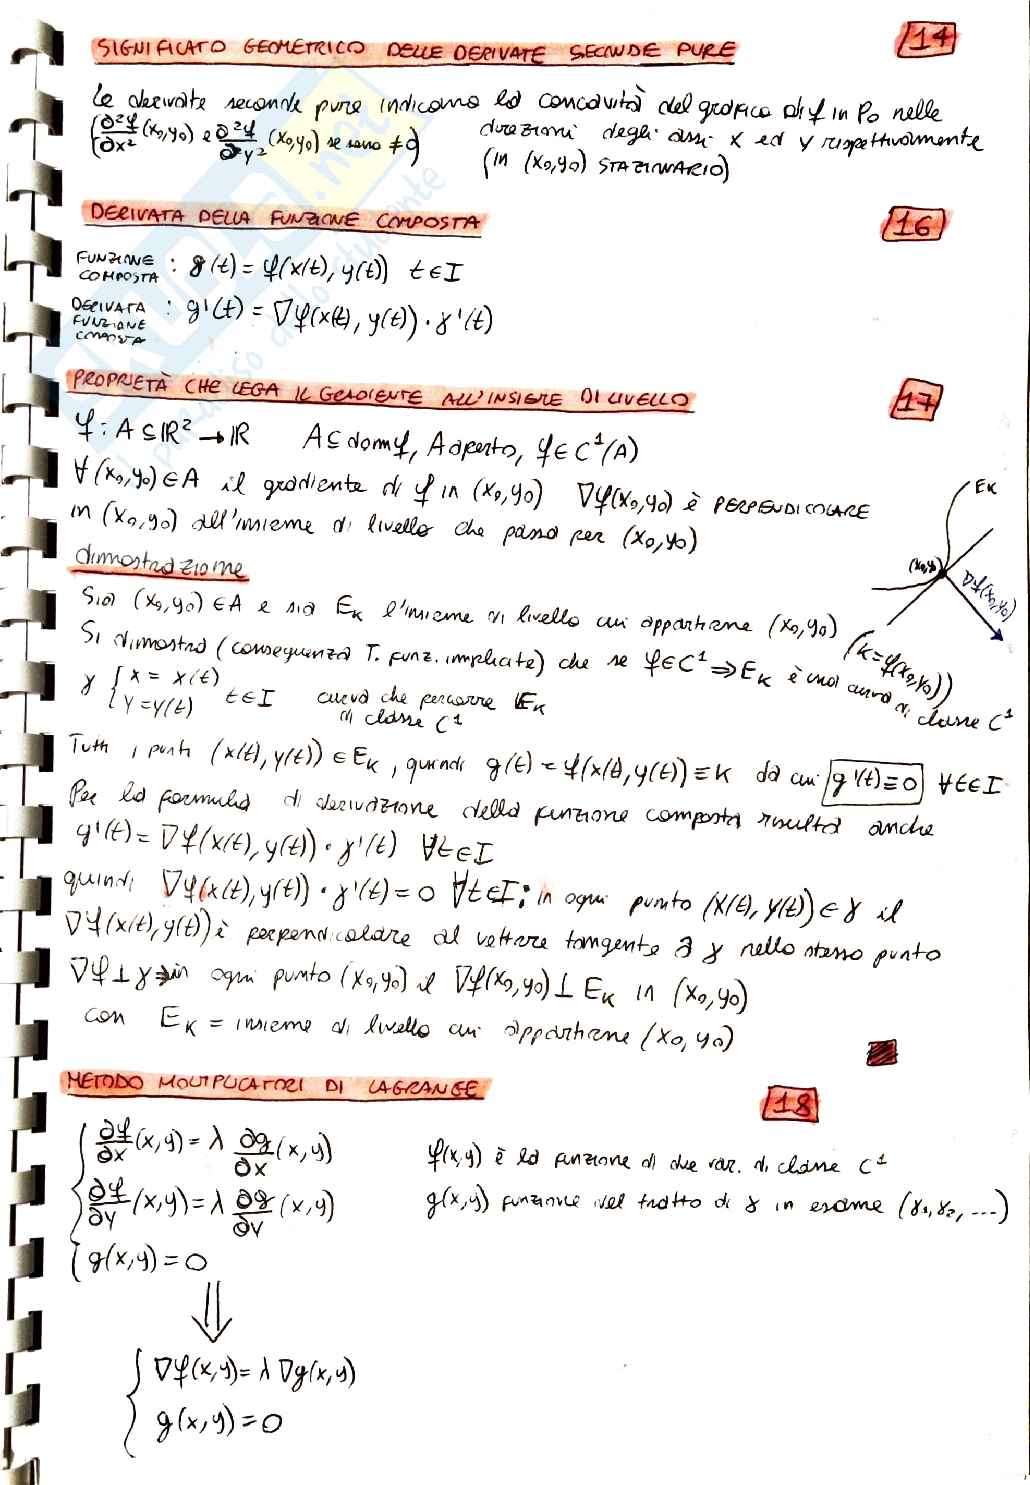 SIGNIFICATO GEOMETRICO DELLE DERIVATE SECONDE PURE 14
Le derivate seconde pure indicano la concavità del grafico di f in P₀ nelle
(∂²f/∂x² (x₀,y₀) e ∂²f/∂y² (x₀,y₀) se sono ≠0) direzioni degli assi x ed y rispettivamente
(in (x₀,y₀) STAZIONARIO)
DERIVATA DELLA FUNZIONE COMPOSTA 16
FUNZIONE COMPOSTA : g(t) = f(x(t), y(t)) t∈I
DERIVATA FUNZIONE COMPOSTA : g'(t) = ∇f(x(t), y(t)) · γ'(t)
PROPRIETÀ CHE LEGA IL GRADIENTE ALL'INSIEME DI LIVELLO 17
f : A ⊆ ℝ² → ℝ A ⊆ dom f, A aperto, f ∈ C¹(A)
∀ (x₀,y₀) ∈ A il gradiente di f in (x₀,y₀) ∇f(x₀,y₀) è PERPENDICOLARE
in (x₀,y₀) all'insieme di livello che passa per (x₀,y₀)
E_K
(x₀,y₀)
∇f(x₀,y₀)
dimostrazione
Sia (x₀,y₀) ∈ A e sia E_K l'insieme di livello cui appartiene (x₀,y₀) (K=f(x₀,y₀))
Si dimostra (conseguenza T. funz. implicite) che se f ∈ C¹ ⇒ E_K è una curva di classe C¹
γ { x = x(t) y = y(t) t∈I curva che percorre E_K
di classe C¹
Tutti i punti (x(t), y(t)) ∈ E_K, quindi g(t) = f(x(t), y(t)) ≡ K da cui g'(t) ≡ 0 ∀t∈I
Per la formula di derivazione della funzione composta risulta anche
g'(t) = ∇f(x(t), y(t)) · γ'(t) ∀t∈I
quindi ∇f(x(t), y(t)) · γ'(t) = 0 ∀t∈I : in ogni punto (x(t), y(t)) ∈ γ il
∇f(x(t), y(t)) è perpendicolare al vettore tangente a γ nello stesso punto
∇f ⊥ γ ⇒ in ogni punto (x₀,y₀) il ∇f(x₀,y₀) ⊥ E_K in (x₀,y₀)
con E_K = insieme di livello cui appartiene (x₀,y₀)
METODO MOLTIPLICATORI DI LAGRANGE 18
{ ∂f/∂x (x,y) = λ ∂g/∂x (x,y) f(x,y) è la funzione di due var. di classe C¹
∂f/∂y (x,y) = λ ∂g/∂y (x,y) g(x,y) funzione nel tratto di γ in esame (γ₁, γ₂, ...)
g(x,y) = 0
⇓
{ ∇f(x,y) = λ ∇g(x,y)
g(x,y) = 0